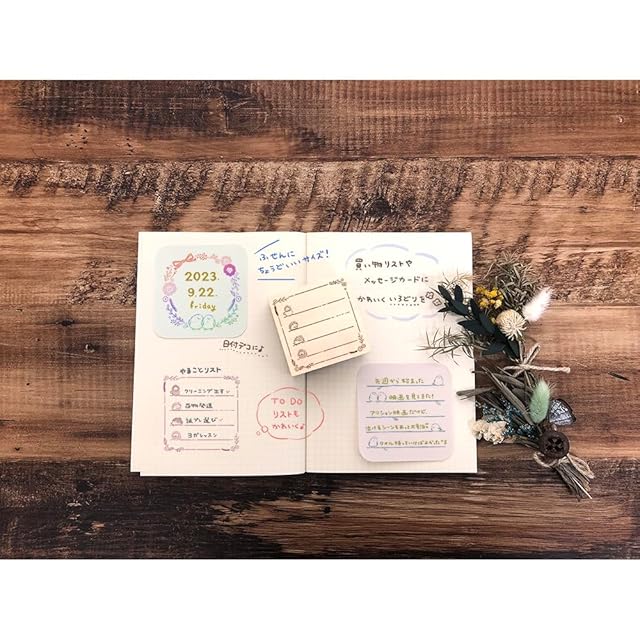 2023.
9.22.
friday
ふせんに
ちょうどいいサイズ!
日付デコに♪
やることリスト
クリーニング出す
荷物発送
ヨガレッスン
TO DO
リストも
かわいく♪
買い物リストや
メッセージカードに
かわいくいろどりを
今週から始まった
映画を見てきた!
アクション映画だけど、
泣けるシーンもあってお気に入り